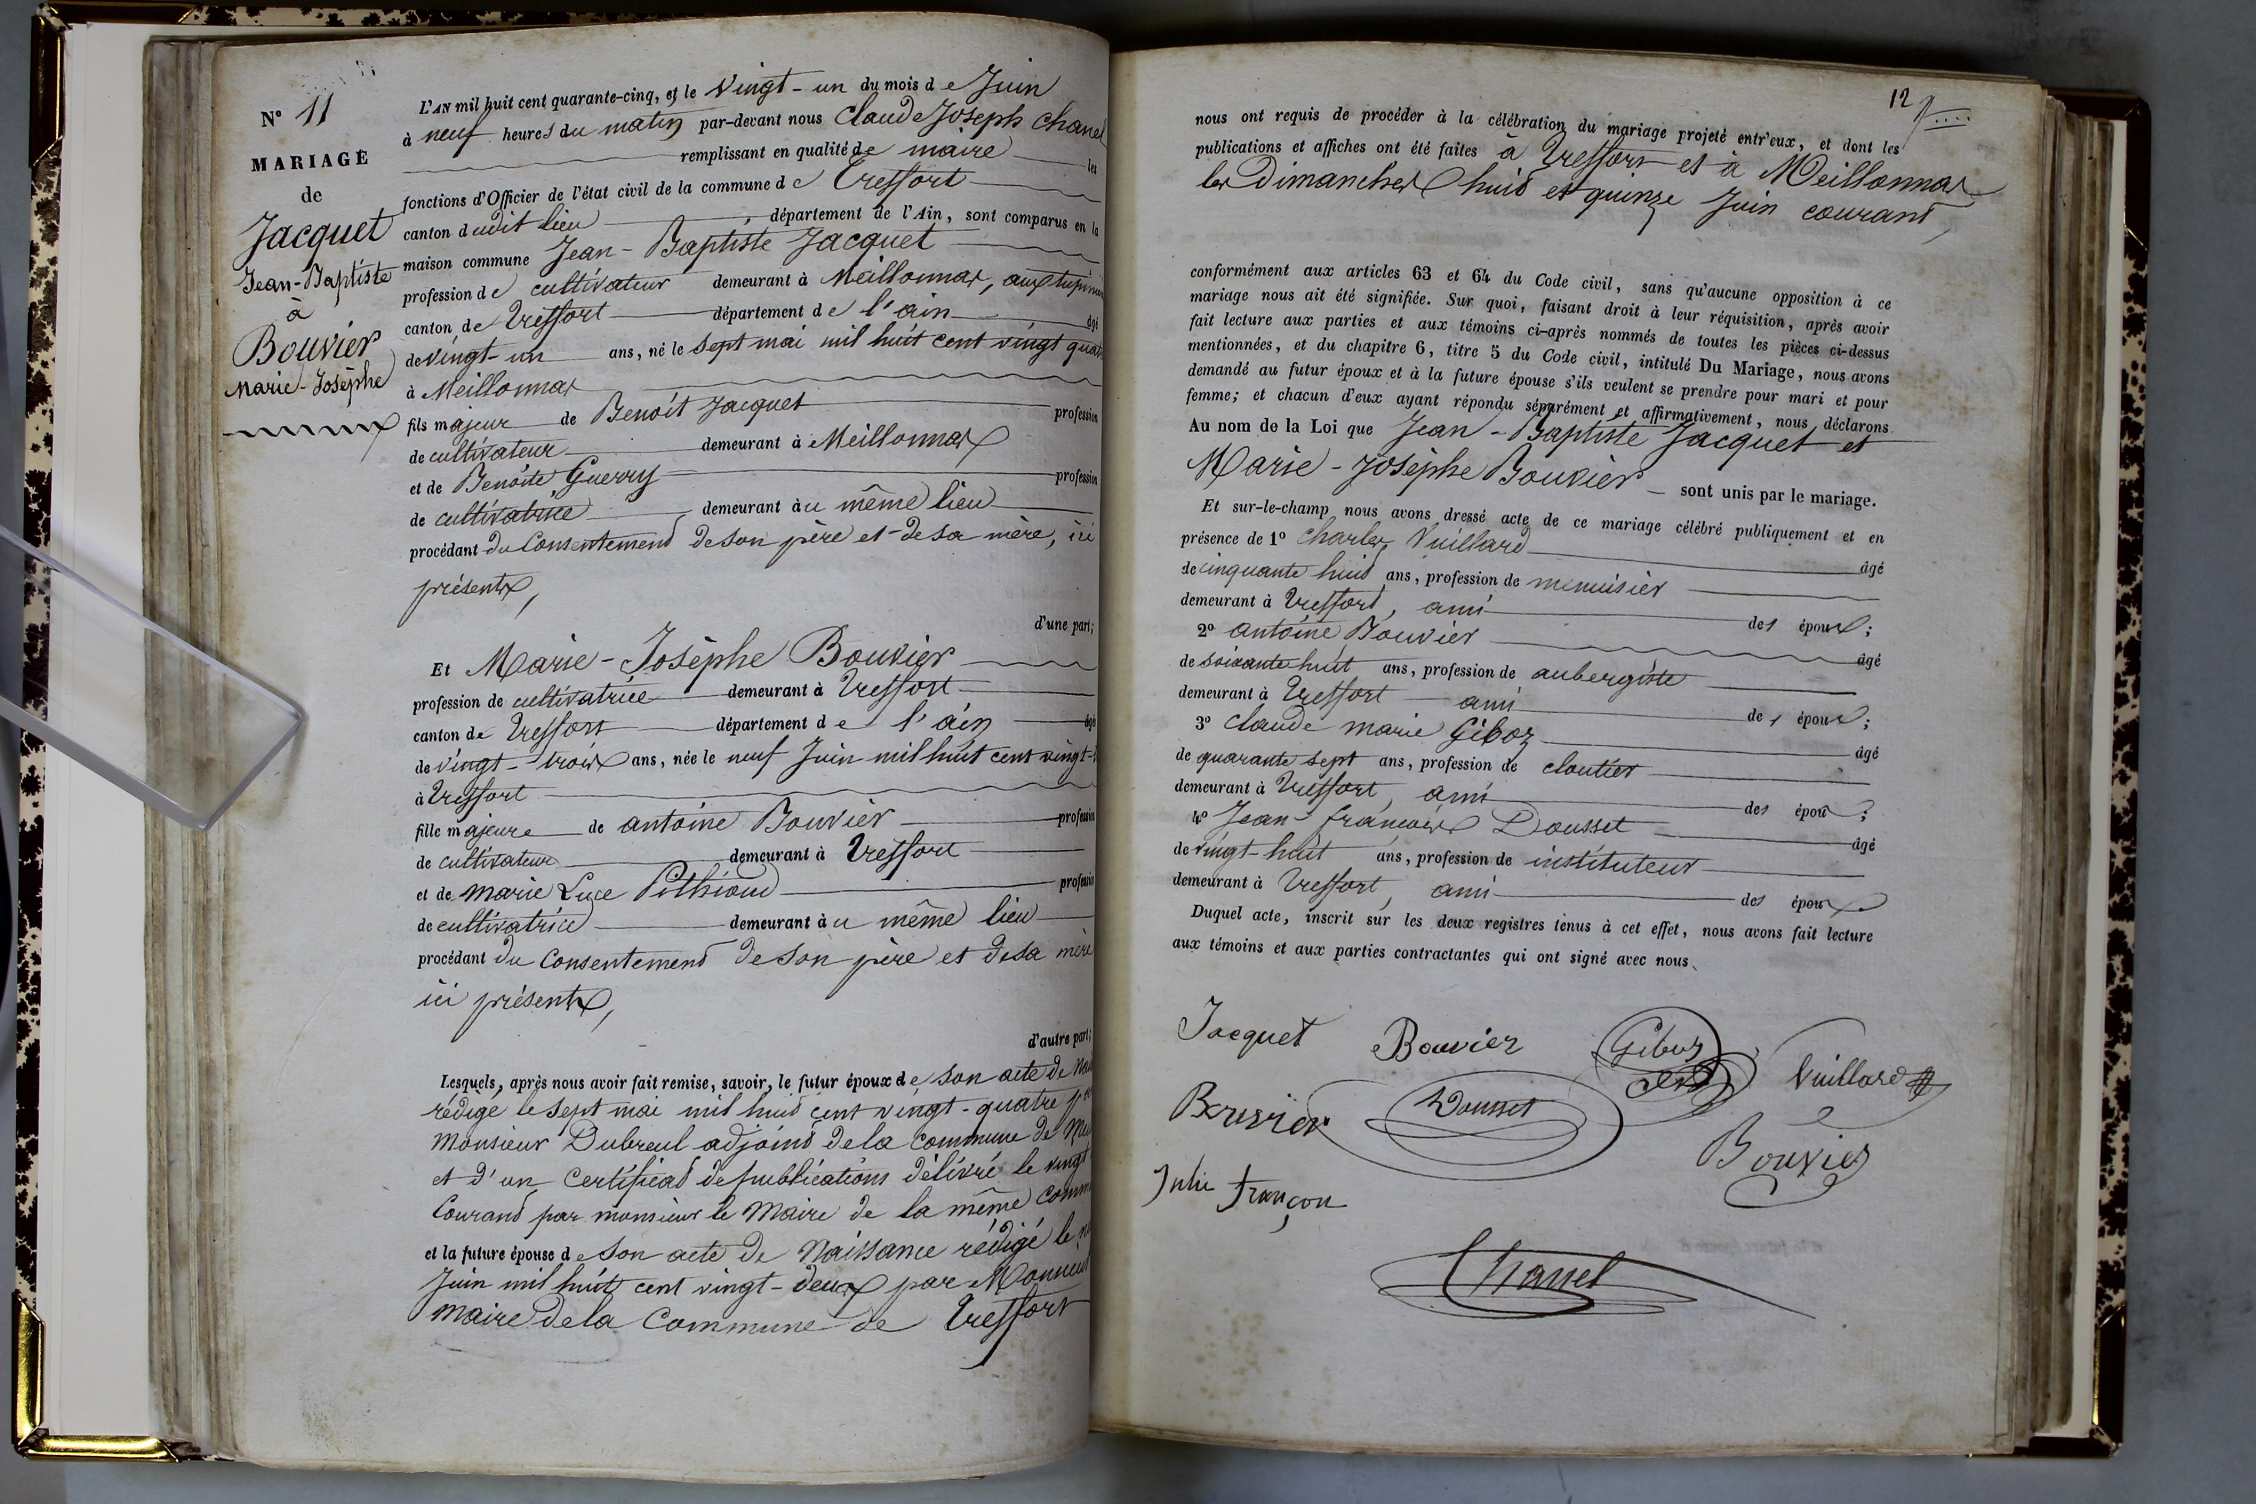 N° 11
MARIAGE
de
Jacquet
Jean-Baptiste
à
Bouvier
Marie-Josèphe
L'AN mil huit cent quarante-cinq, et le vingt-un du mois de Juin
à neuf heures du matin par-devant nous Claude Joseph Chanel
remplissant en qualité de maire les
fonctions d'Officier de l'état civil de la commune de Treffort
canton dudit lieu département de l'Ain, sont comparus en la
maison commune Jean-Baptiste Jacquet
profession de cultivateur demeurant à Meillonnas,
canton de Treffort département de l'ain âgé
de vingt-un ans, né le sept mai mil huit cent vingt quatre
à Meillonnas
fils majeur de Benoît Jacquet profession
de cultivateur demeurant à Meillonnas
et de Benoîte Guerry profession
de cultivatrice demeurant au même lieu
procédant du consentement de son père et de sa mère, ici
présents,
d'une part;
Et Marie-Josèphe Bouvier
profession de cultivatrice demeurant à Treffort
canton de Treffort département de l'ain âgé
de vingt-trois ans, née le neuf Juin mil huit cent vingt-
à Treffort
fille majeure de antoine Bouvier profession
de cultivateur demeurant à Treffort
et de Marie Luce Pithioud profession
de cultivatrice demeurant au même lieu
procédant du consentement de son père et de sa mère
ici présents,
d'autre part;
Lesquels, après nous avoir fait remise, savoir, le futur époux de son acte de
rédigé le sept mai mil huit cent vingt-quatre
monsieur Dubreul adjoint de la commune de
et d'un certificat de publications délivré le vingt
courant par monsieur le Maire de la même
et la future épouse de son acte de Naissance rédigé le
Juin mil huit cent vingt-deux par
maire de la commune de Treffort
12
nous ont requis de procéder à la célébration du mariage projeté entr'eux, et dont les
publications et affiches ont été faites à Treffort et à Meillonnas
les Dimanches huit et quinze Juin courant,
conformément aux articles 63 et 64 du Code civil, sans qu'aucune opposition à ce
mariage nous ait été signifiée. Sur quoi, faisant droit à leur réquisition, après avoir
fait lecture aux parties et aux témoins ci-après nommés de toutes les pièces ci-dessus
mentionnées, et du chapitre 6, titre 5 du Code civil, intitulé Du Mariage, nous avons
demandé au futur époux et à la future épouse s'ils veulent se prendre pour mari et pour
femme; et chacun d'eux ayant répondu séparément et affirmativement, nous déclarons
Au nom de la Loi que Jean-Baptiste Jacquet et
Marie-Josèphe Bouvier sont unis par le mariage.
Et sur-le-champ nous avons dressé acte de ce mariage célébré publiquement et en
présence de 1° Charles Vuillard âgé
de cinquante huit ans, profession de menuisier
demeurant à Treffort, ami des époux;
2° antoine Bouvier âgé
de soixante huit ans, profession de aubergiste
demeurant à Treffort ami des époux;
3° Claude marie Giboz âgé
de quarante sept ans, profession de cloutier
demeurant à Treffort, ami des époux;
4° Jean-françois Dousset âgé
de vingt-huit ans, profession de instituteur
demeurant à Treffort, ami des époux
Duquel acte, inscrit sur les deux registres tenus à cet effet, nous avons fait lecture
aux témoins et aux parties contractantes qui ont signé avec nous.
Jacquet Bouvier Giboz Vuillard
Bouvier Dousset
Bouvier
Julie françon
Chanel